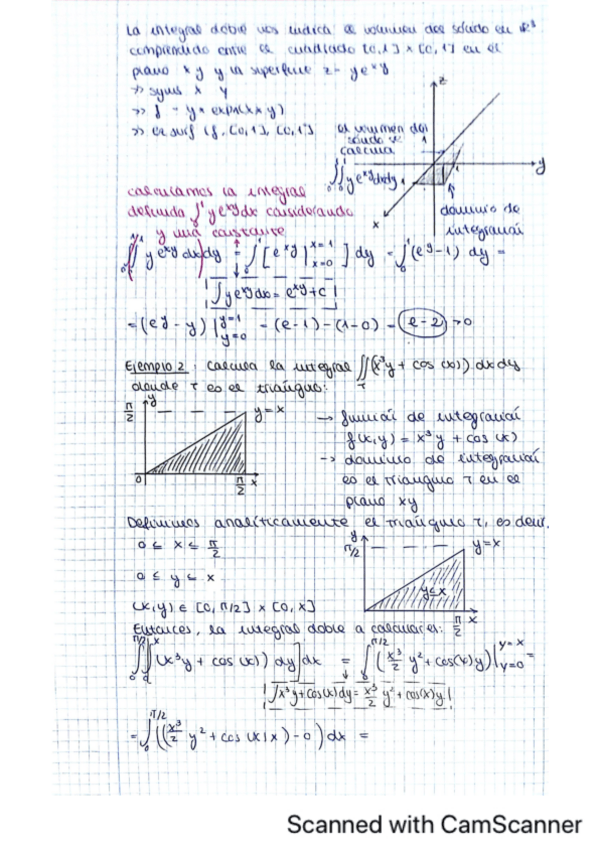 La integral doble nos indica el volumen del sólido en R³
comprendido entre el cuadrado [0,1] x [0,1] en el
plano xy y la superficie z = ye^xy
>> syms x y
>> f = y * exp(x * y)
>> ezsurf (f, [0,1], [0,1])
el volumen del
sólido se
calcula
∫₀¹∫₀¹ y e^xy dx dy
z
1
y
1
x
dominio de
integración
calculamos la integral
definida ∫₀¹ y e^xy dx considerando
y una constante
∫₀¹(∫₀¹ y e^xy dx) dy = ∫₀¹ [e^xy |x=1 x=0] dy = ∫₀¹ (e^y - 1) dy =
∫ y e^xy dx = e^xy + c
= (e^y - y) |y=1 y=0 = (e-1) - (1-0) = e-2 > 0
Ejemplo 2: Calcula la integral ∬_T (x³y + cos(x)) dx dy
donde T es el triángulo:
π/2
y
y=x
0
π/2
x
→ función de integración
f(x,y) = x³y + cos(x)
→ dominio de integración
es el triángulo T en el
plano xy
Definimos analíticamente el triángulo T, es decir,
0 ≤ x ≤ π/2
0 ≤ y ≤ x
(x,y) ∈ [0, π/2] x [0, x]
y
π/2
y=x
y≤x
π/2
x
Entonces, la integral doble a calcular es:
∫₀^π/2 [∫₀^x (x³y + cos(x)) dy] dx = ∫₀^π/2 (x³/2 y² + cos(x)y) |y=x y=0 =
∫x³y+cos(x)dy = x³/2 y² + cos(x)y
= ∫₀^π/2 ((x³/2 y² + cos(x)x) - 0) dx =
Scanned with CamScanner